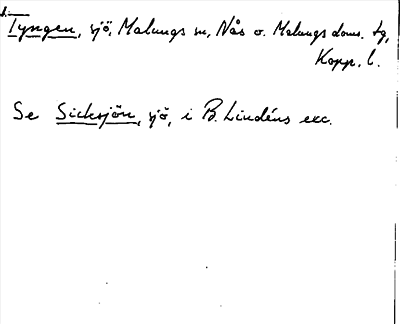 Tyngen, sjö, Malungs sn, Nås o. Malungs doms. tg,
Kopp. l.
Se Sicksjön, sjö, i B. Lindéns exc.